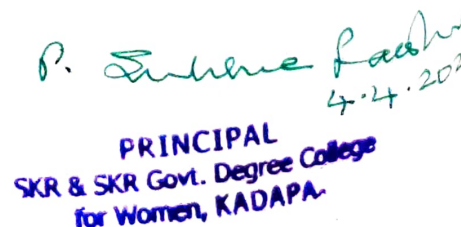 P.
4.4.202
PRINCIPAL
SKR & SKR Govt. Degree College
for Women, KADAPA.